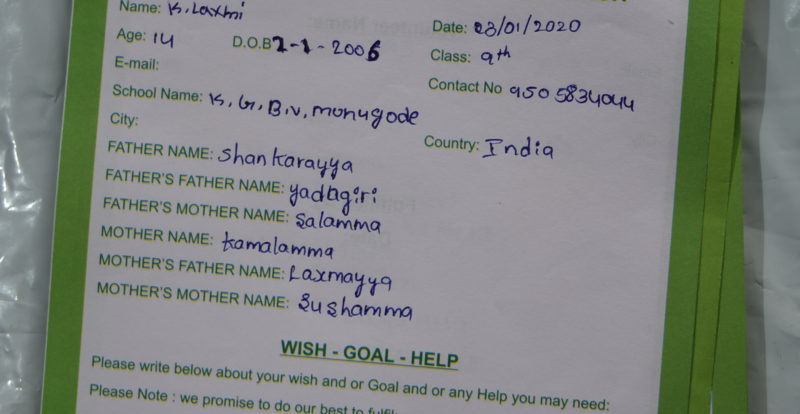 Name: K. Laxmi
Date: 23/01/2020
Age: 14 D.O.B 7-1-2006
Class: 9th
E-mail:
Contact No 9505834044
School Name: K. G. B. V, monugode
City:
Country: India
FATHER NAME: Shankarayya
FATHER'S FATHER NAME: yadagiri
FATHER'S MOTHER NAME: Salamma
MOTHER NAME: kamalamma
MOTHER'S FATHER NAME: Laxmayya
MOTHER'S MOTHER NAME: Sushamma
WISH - GOAL - HELP
Please write below about your wish and or Goal and or any Help you may need:
Please Note : we promise to do our best to